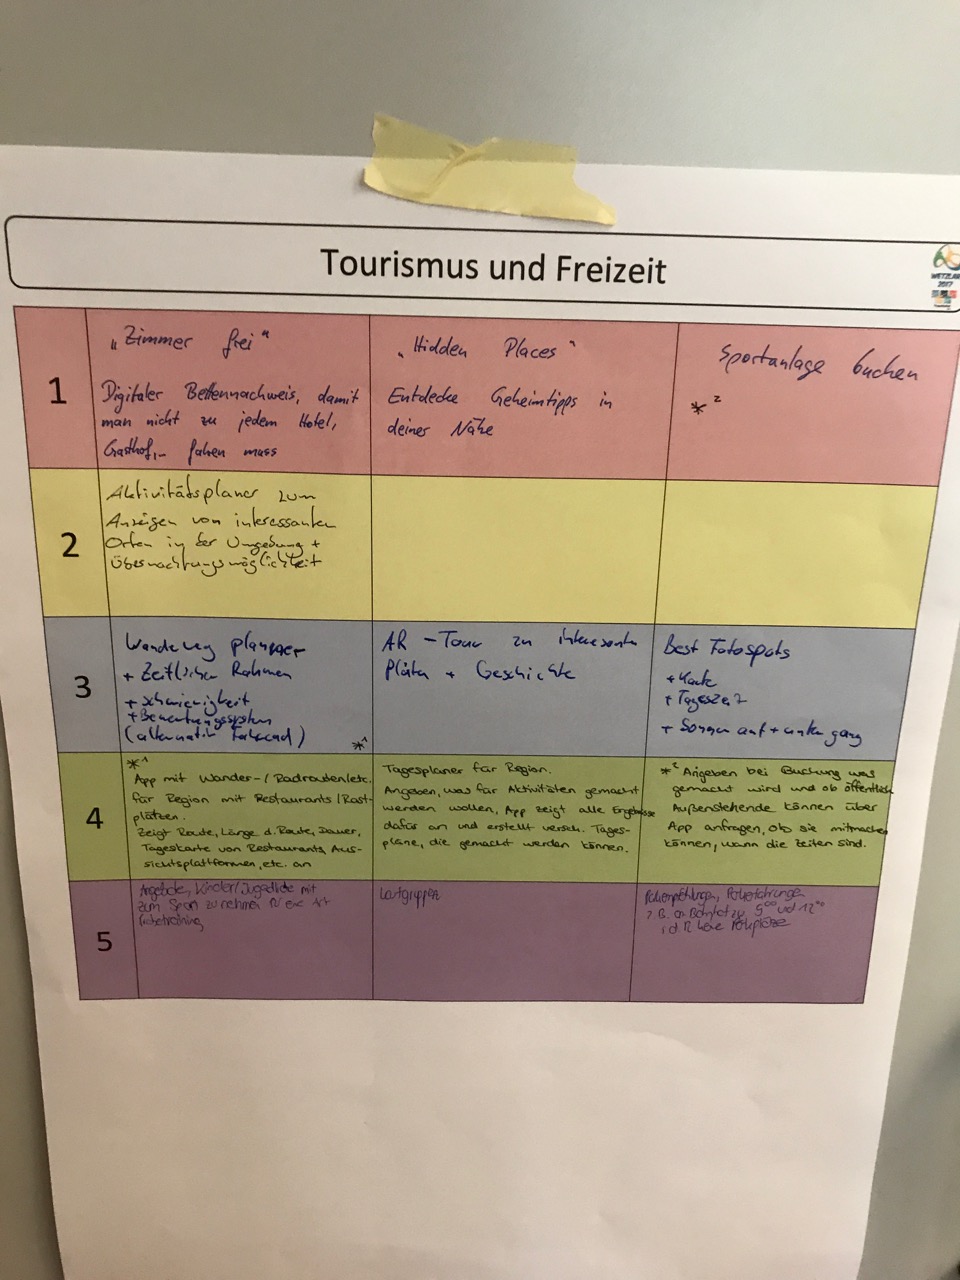 Tourismus und Freizeit
WETZLAR
2017
1
„Zimmer frei"
Digitaler Bettennachweis, damit
man nicht zu jedem Hotel,
Gasthof,.. fahren muss
„Hidden Places"
Entdecke Geheimtipps in
deiner Nähe
Sportanlage buchen
*²
2
Aktivitätsplaner zum
Anzeigen von interessanten
Orten in der Umgebung +
Übernachtungsmöglichkeit
3
Wanderweg planer
+ Zeitlicher Rahmen
+ schwierigkeit
+ Bewertungssystem
(alternativ Fahrrad)
*¹
AR - Tour zu interessanten
+ Geschichte
Best Fotospots
+ Karte
+ Tageszeit
+ Sonnen auf + unter gang
4
*¹
App mit Wander-/Radrouten/etc.
für Region mit Restaurants/Rast-
plätzen.
Zeigt Route, Länge d. Route, Dauer,
Tageskarte von Restaurants, Aus-
sichtsplattformen, etc. an
Tagesplaner für Region.
Angeben, was für Aktivitäten gemacht
werden wollen, App zeigt alle Ergebnisse
dafür an und erstellt versch. Tages-
pläne, die gemacht werden können.
*² Angeben bei Buchung was
gemacht wird und ob öffentlich
Außenstehende können über
App anfragen, ob sie mitmachen
können, wann die Zeiten sind.
5
Angebote, Kinder/Jugendliche mit
zum Sport zu nehmen für eine Art
Laufgruppen
Parkempfehlungen, Parkerfahrungen
z.B. am Bahnhof zw 5⁰⁰ und 12⁰⁰
i.d.R. keine Parkplätze